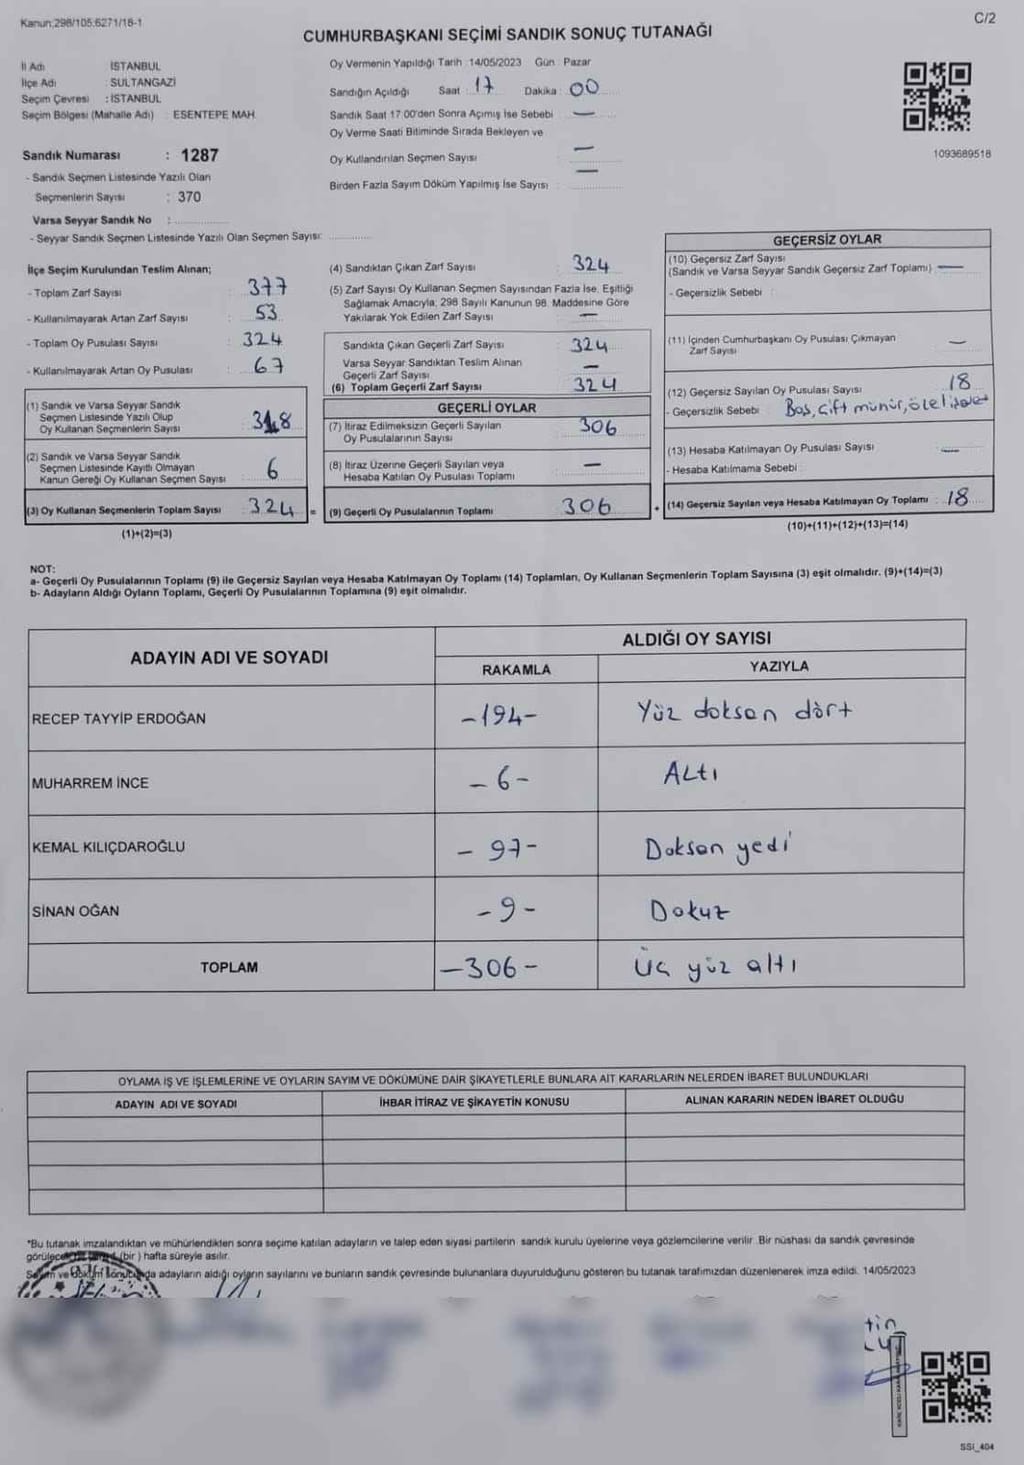 Kanun:298/105.6271/18-1
C/2
CUMHURBAŞKANI SEÇİMİ SANDIK SONUÇ TUTANAĞI
İl Adı İSTANBUL
İlçe Adı : SULTANGAZİ
Seçim Çevresi : İSTANBUL
Seçim Bölgesi (Mahalle Adı) : ESENTEPE MAH.
Sandık Numarası : 1287
- Sandık Seçmen Listesinde Yazılı Olan
Seçmenlerin Sayısı : 370
Varsa Seyyar Sandık No :
- Seyyar Sandık Seçmen Listesinde Yazılı Olan Seçmen Sayısı:
Oy Vermenin Yapıldığı Tarih : 14/05/2023 Gün : Pazar
Sandığın Açıldığı Saat : 17 Dakika : 00
Sandık Saat 17:00'den Sonra Açımış İse Sebebi : —
Oy Verme Saati Bitiminde Sırada Bekleyen ve
Oy Kullandırılan Seçmen Sayısı —
Birden Fazla Sayım Döküm Yapılmış İse Sayısı : —
1093689518
İlçe Seçim Kurulundan Teslim Alınan;
- Toplam Zarf Sayısı : 377
- Kullanılmayarak Artan Zarf Sayısı : 53
- Toplam Oy Pusulası Sayısı : 324
- Kullanılmayarak Artan Oy Pusulası : 67
(1) Sandık ve Varsa Seyyar Sandık
Seçmen Listesinde Yazılı Olup
Oy Kullanan Seçmenlerin Sayısı : 318
(2) Sandık ve Varsa Seyyar Sandık
Seçmen Listesinde Kayıtlı Olmayan
Kanun Gereği Oy Kullanan Seçmen Sayısı 6
(3) Oy Kullanan Seçmenlerin Toplam Sayısı : 324 =
(1)+(2)=(3)
(4) Sandıktan Çıkan Zarf Sayısı : 324
(5) Zarf Sayısı Oy Kullanan Seçmen Sayısından Fazla İse, Eşitliği
Sağlamak Amacıyla; 298 Sayılı Kanunun 98. Maddesine Göre
Yakılarak Yok Edilen Zarf Sayısı : —
Sandıkta Çıkan Geçerli Zarf Sayısı : 324
Varsa Seyyar Sandıktan Teslim Alınan
Geçerli Zarf Sayısı —
(6) Toplam Geçerli Zarf Sayısı : 324
GEÇERLİ OYLAR
(7) İtiraz Edilmeksizin Geçerli Sayılan
Oy Pusulalarının Sayısı : 306
(8) İtiraz Üzerine Geçerli Sayılan veya
Hesaba Katılan Oy Pusulası Toplamı —
(9) Geçerli Oy Pusulalarının Toplamı : 306 +
GEÇERSİZ OYLAR
(10) Geçersiz Zarf Sayısı
(Sandık ve Varsa Seyyar Sandık Geçersiz Zarf Toplamı) —
- Geçersizlik Sebebi :
(11) İçinden Cumhurbaşkanı Oy Pusulası Çıkmayan
Zarf Sayısı —
(12) Geçersiz Sayılan Oy Pusulası Sayısı 18
- Geçersizlik Sebebi : Boş, çift mühür, özel işaret
(13) Hesaba Katılmayan Oy Pusulası Sayısı : —
- Hesaba Katılmama Sebebi :
(14) Geçersiz Sayılan veya Hesaba Katılmayan Oy Toplamı : 18
(10)+(11)+(12)+(13)=(14)
NOT:
a- Geçerli Oy Pusulalarının Toplamı (9) ile Geçersiz Sayılan veya Hesaba Katılmayan Oy Toplamı (14) Toplamları, Oy Kullanan Seçmenlerin Toplam Sayısına (3) eşit olmalıdır. (9)+(14)=(3)
b- Adayların Aldığı Oyların Toplamı, Geçerli Oy Pusulalarının Toplamına (9) eşit olmalıdır.
ADAYIN ADI VE SOYADI ALDIĞI OY SAYISI
RAKAMLA YAZIYLA
RECEP TAYYİP ERDOĞAN -194- Yüz doksan dört
MUHARREM İNCE -6- Altı
KEMAL KILIÇDAROĞLU -97- Doksan yedi
SİNAN OĞAN -9- Dokuz
TOPLAM -306- Üç yüz altı
OYLAMA İŞ VE İŞLEMLERİNE VE OYLARIN SAYIM VE DÖKÜMÜNE DAİR ŞİKAYETLERLE BUNLARA AİT KARARLARIN NELERDEN İBARET BULUNDUKLARI
ADAYIN ADI VE SOYADI İHBAR İTİRAZ VE ŞİKAYETİN KONUSU ALINAN KARARIN NEDEN İBARET OLDUĞU
*Bu tutanak imzalandıktan ve mühürlendikten sonra seçime katılan adayların ve talep eden siyasi partilerin sandık kurulu üyelerine veya gözlemcilerine verilir. Bir nüshası da sandık çevresinde
(bir ) hafta süreyle asılır.
Sayım ve döküm sonucunda adayların aldığı oyların sayılarını ve bunların sandık çevresinde bulunanlara duyurulduğunu gösteren bu tutanak tarafımızdan düzenlenerek imza edildi. 14/05/2023
SSi_404